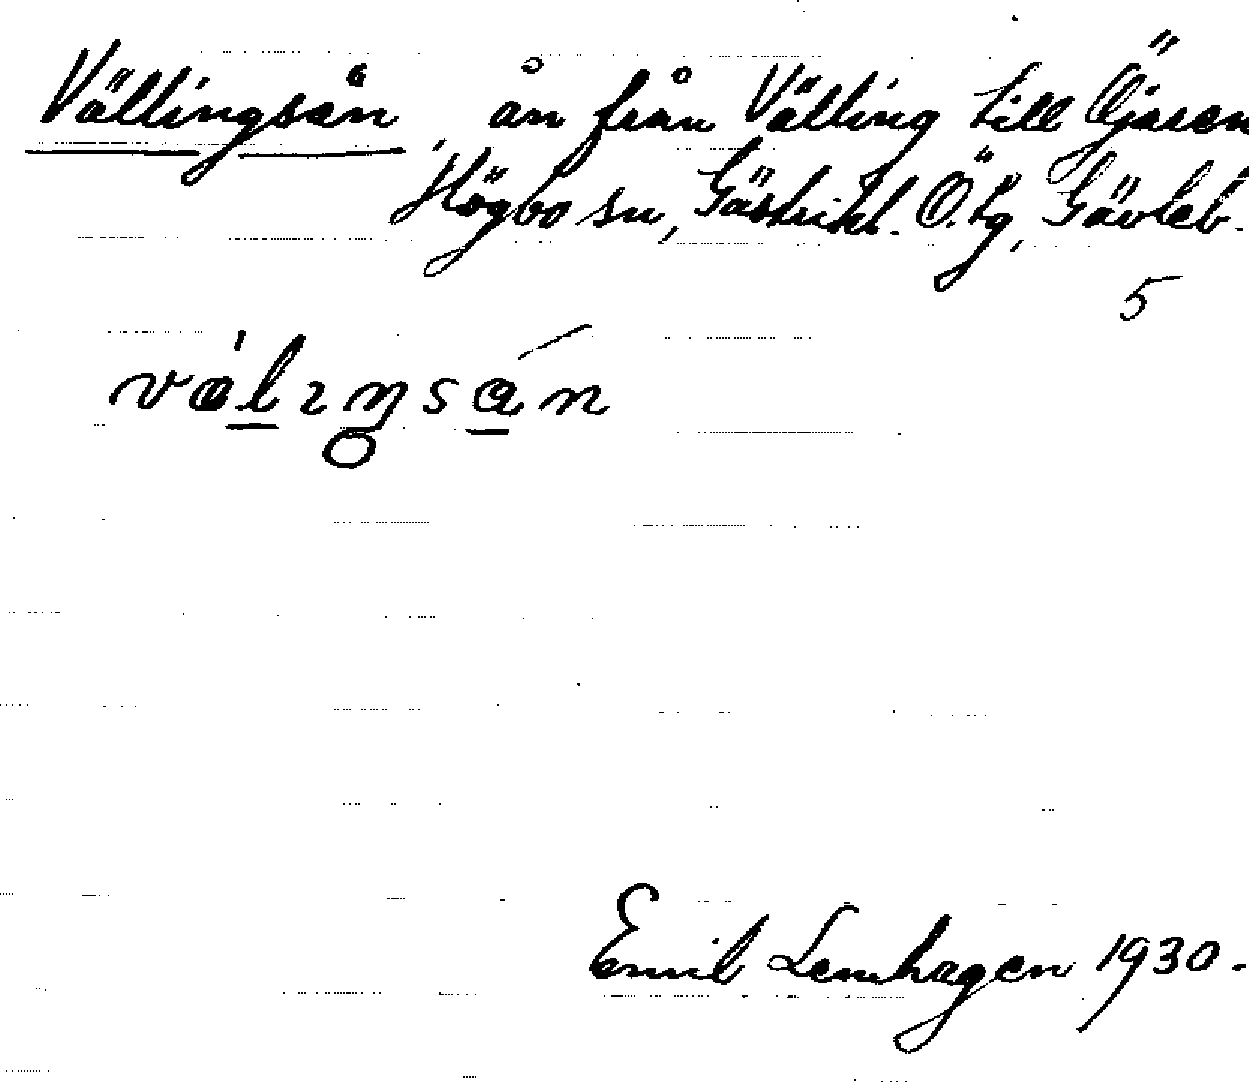 Vällingsån, ån från Välling till Öjaren
Högbo sn, Gästrikl. Ö. tg, Gävleb.
5
Emil Lemhagen 1930.